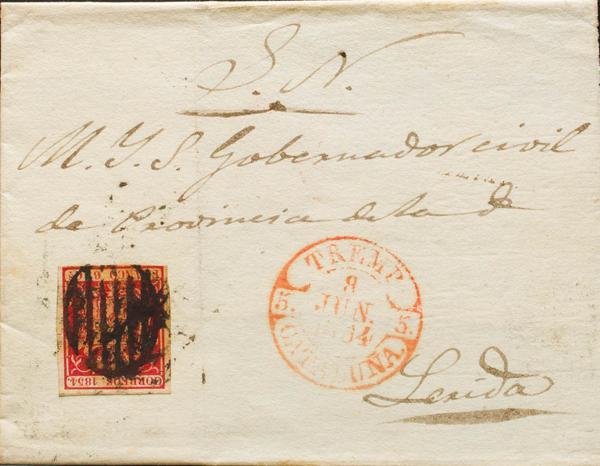 S. N.
M. Y. S. Gobernador civil
de Provincia de la de
Lerida
TREMP
8
JUN.
1854
5 CATALUÑA. 5
CORREOS. 1854